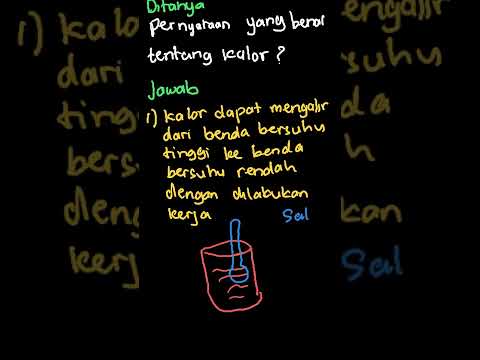 Ditanya
pernyataan yang benar
tentang kalor ?
Jawab
1) Kalor dapat mengalir
dari benda bersuhu
tinggi ke benda
bersuhu rendah
dengan dilakukan
kerja
Sal